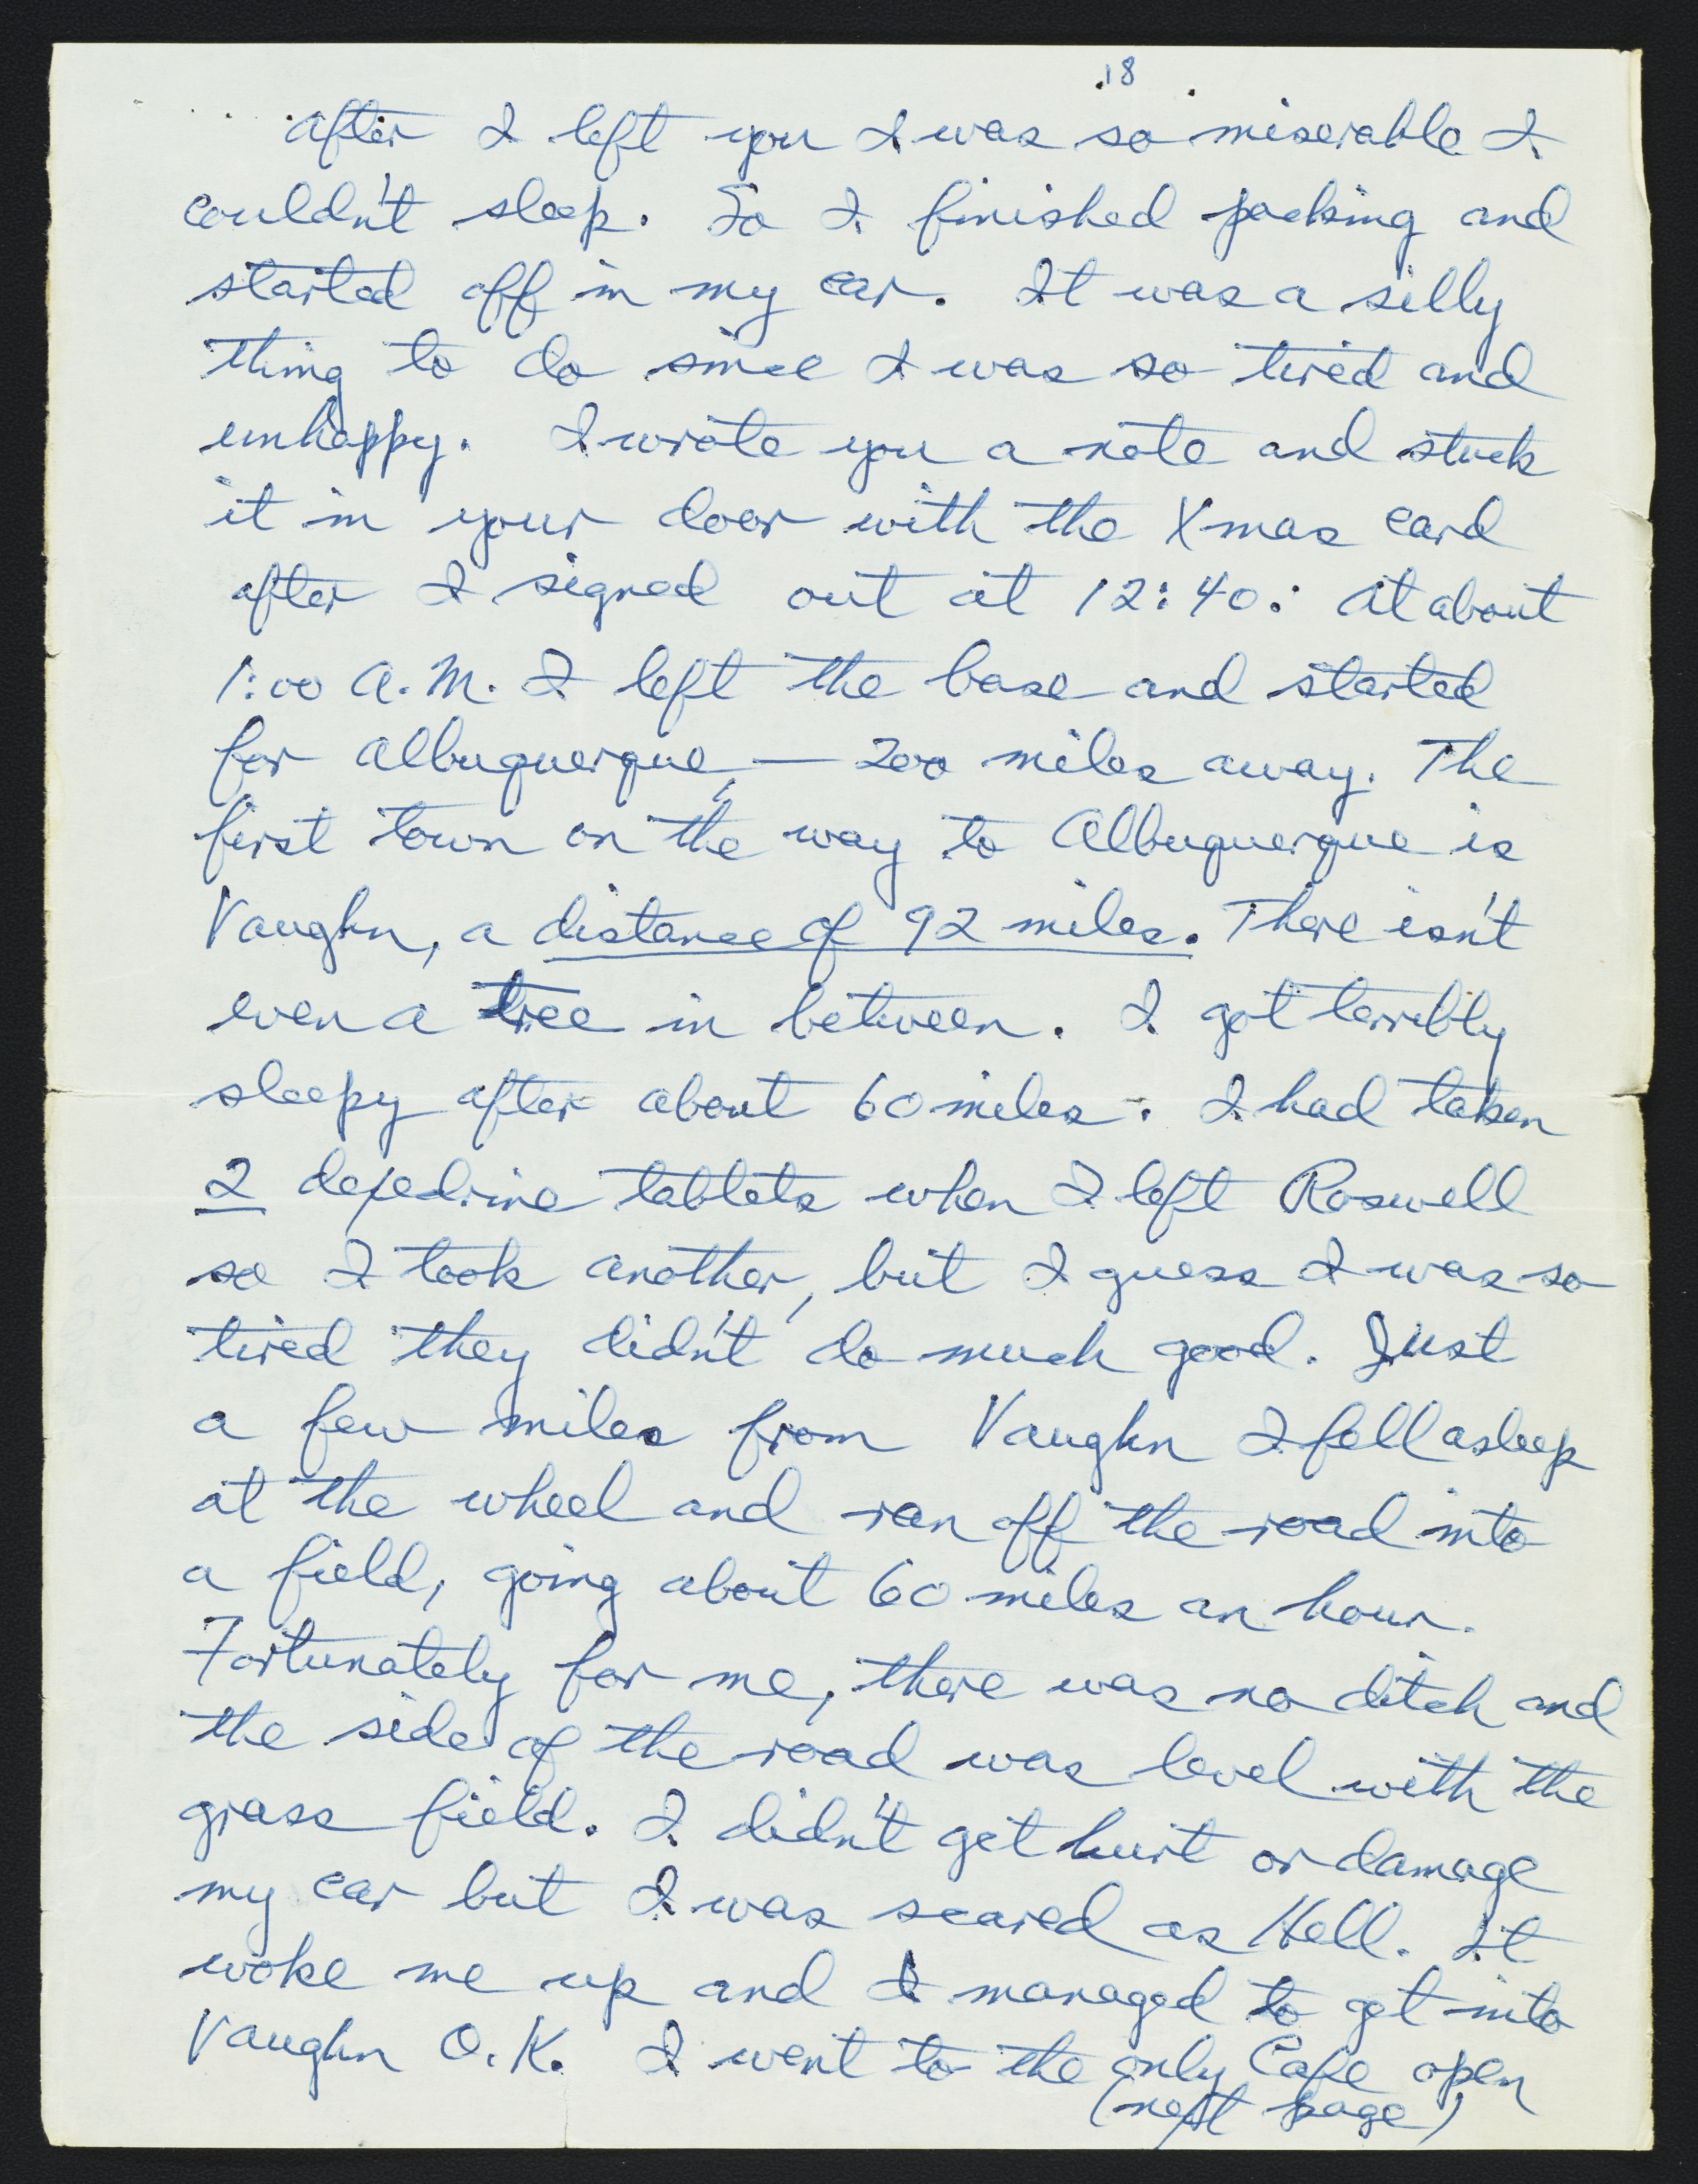 18
After I left you I was so miserable I
couldn't sleep. So I finished packing and
started off in my car. It was a silly
thing to do since I was so tired and
unhappy. I wrote you a note and stuck
it in your door with the Xmas card
after I signed out at 12:40. At about
1:00 A.M. I left the base and started
for Albuquerque, — 200 miles away. The
first town on the way to Albuquerque is
Vaughn, a distance of 92 miles. There isn't
even a tree in between. I got terribly
sleepy after about 60 miles. I had taken
2 dexedrine tablets when I left Roswell
so I took another, but I guess I was so
tired they didn't do much good. Just
a few miles from Vaughn I fell asleep
at the wheel and ran off the road into
a field, going about 60 miles an hour.
Fortunately for me, there was no ditch and
the side of the road was level with the
grass field. I didn't get hurt or damage
my car but I was scared as Hell. It
woke me up and I managed to get into
Vaughn O.K. I went to the only Cafe open
(next page)